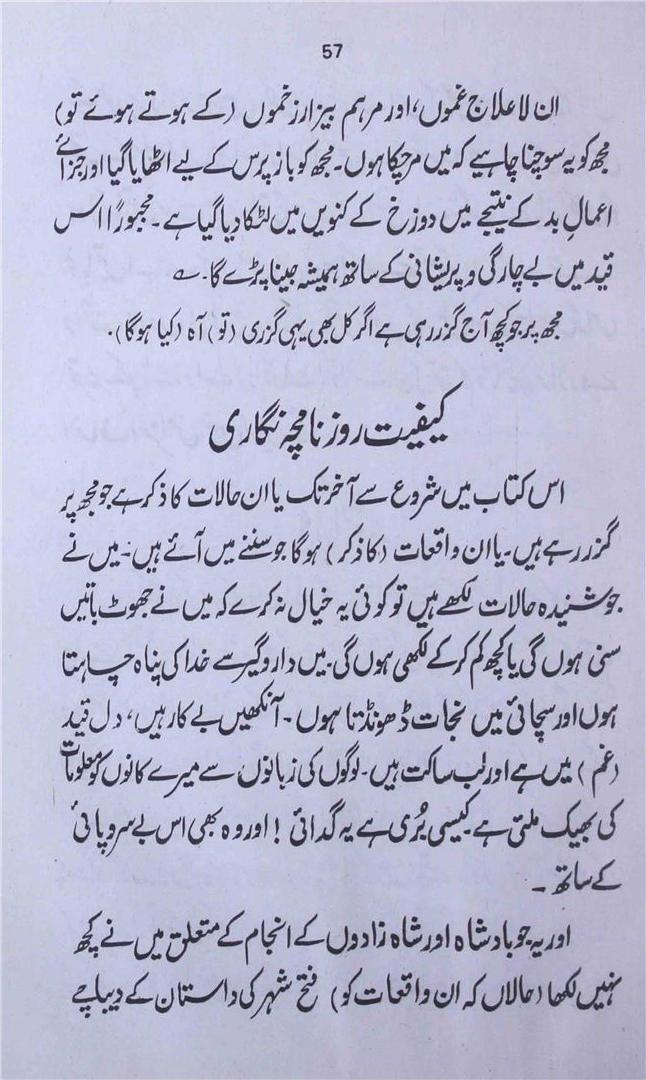 57
ان لاعلاج غموں، اور مرہم بیزار زخموں (کے ہوتے ہوئے تو)
مجھ کو یہ سوچنا چاہیے کہ میں مرچکا ہوں۔ مجھ کو باز پرس کے لیے اٹھایا گیا اور جزائے
اعمالِ بد کے نتیجے میں دوزخ کے کنویں میں لٹکا دیا گیا ہے۔ مجبوراً اس
قید میں بے چارگی و پریشانی کے ساتھ ہمیشہ جینا پڑے گا۔ ؎
مجھ پر جو کچھ آج گزر رہی ہے اگر کل بھی یہی گزری (تو) آہ (کیا ہوگا)۔
کیفیت روزنامچہ نگاری
اس کتاب میں شروع سے آخر تک یا ان حالات کا ذکر ہے جو مجھ پر
گزر رہے ہیں۔ یا ان واقعات (کا ذکر) ہوگا جو سننے میں آئے ہیں۔ میں نے
جو شنیدہ حالات لکھے ہیں تو کوئی یہ خیال نہ کرے کہ میں نے جھوٹ باتیں
سنی ہوں گی یا کچھ کم کرکے لکھی ہوں گی۔ میں داروگیر سے خدا کی پناہ چاہتا
ہوں اور سچائی میں نجات ڈھونڈتا ہوں۔ آنکھیں بے کار ہیں، دل قید
(غم) میں ہے اور لب ساکت ہیں۔ لوگوں کی زبانوں سے میرے کانوں کو معلومات
کی بھیک ملتی ہے۔ کیسی بُری ہے یہ گدائی! اور وہ بھی اس بے سروپائی
کے ساتھ۔
اور یہ جو بادشاہ اور شاہ زادوں کے انجام کے متعلق میں نے کچھ
نہیں لکھا (حالاں کہ ان واقعات کو) فتح شہر کی داستان کے دیباچے